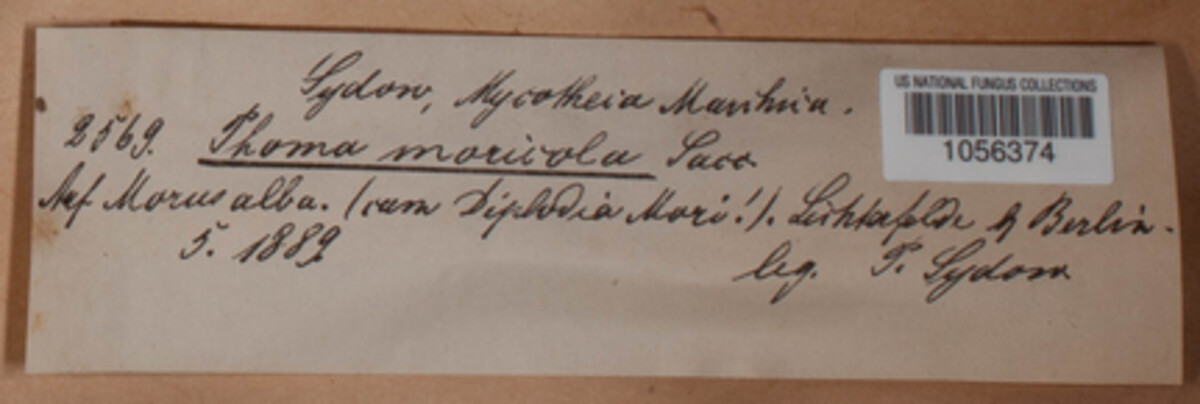 Sydow, Mycotheca Marchica.
2569. Phoma moricola Sacc.
Auf Morus alba. (cum Diplodia Mori!). Lichterfelde b. Berlin.
5. 1889
leg. P. Sydow
US NATIONAL FUNGUS COLLECTIONS
1056374